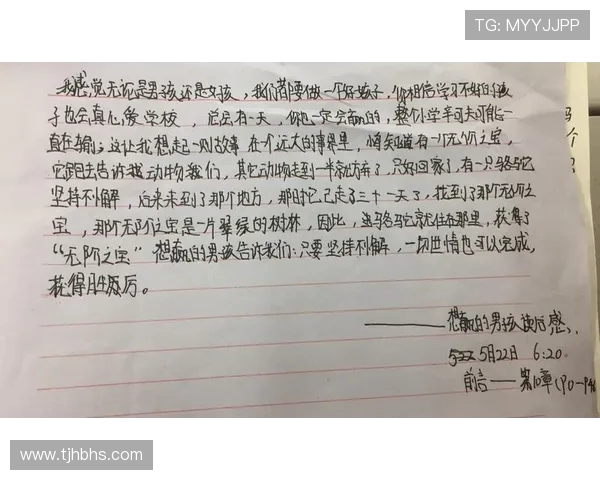 TG: MYYJJPP
我感觉无论是男孩还是女孩，我们都要做一个好孩子，你相信学习不好的孩
子也会真心爱学校，总会有一天，你也一定会赢的，整个小学车可夫可能一
直在输。这让我想起一则故事在个远大的事界里，悄知道有一个无价之宝，
它跑去告诉我动物我们，其它动物走到一半就放弃了，只好回家了，有一只骆驼
坚持不懈，后来来到了那个地方，那时它已走了三十一天了，找到了那个无价之
宝，那个无价之宝是一片翠绿的树林，因此，骆驼就住在那里，获得了
“无价之宝”想赢的男孩告诉我们：只要坚持不懈，一切世情也可以完成，
获得胜后。
——想赢的男孩读后感、
5月22日 6:20
前言——第10章(P0-P4
www.tjhbhs.com